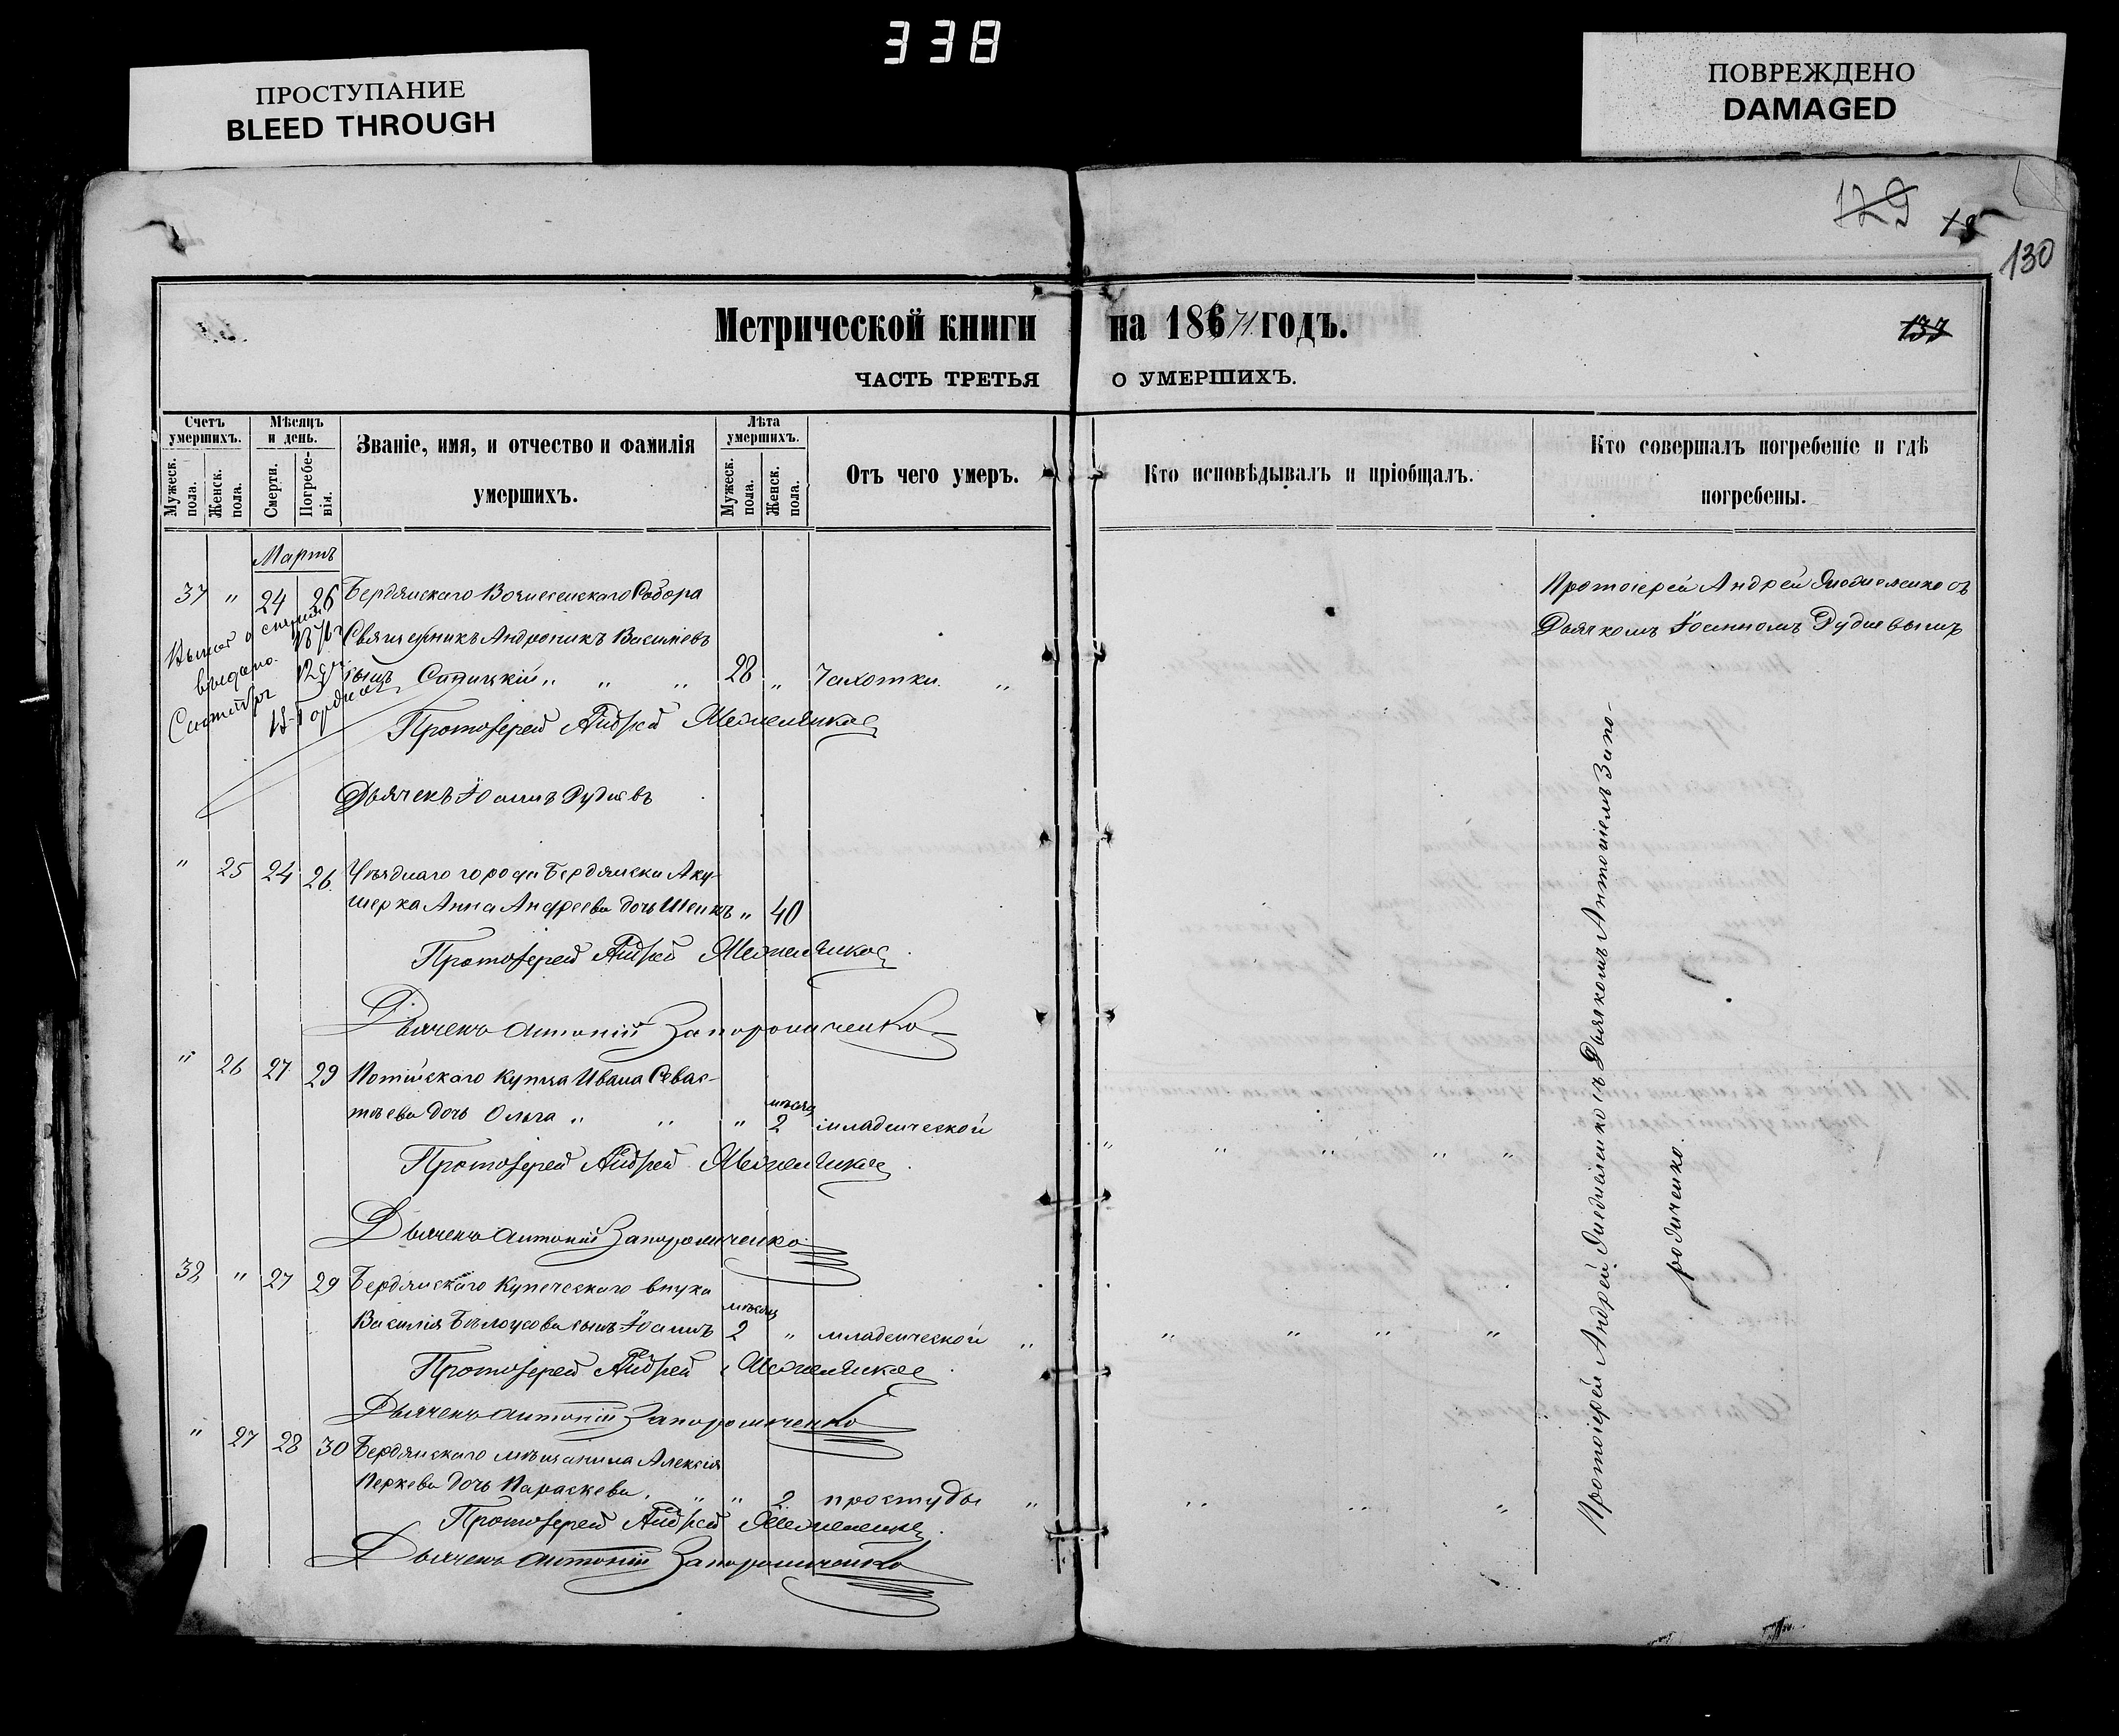 338
ПРОСТУПАНИЕ
BLEED THROUGH
ПОВРЕЖДЕНО
DAMAGED
129
130
Метрической книги на 1871 годъ.
137
ЧАСТЬ ТРЕТЬЯ О УМЕРШИХЪ.
Счетъ умершихъ.
Мужеск. пола.
Женск. пола.
Мѣсяцъ и день.
Смерти.
Погребенія.
Званіе, имя, и отчество и фамилія
умершихъ.
Лѣта умершихъ.
Мужеск. пола.
Женск. пола.
Отъ чего умеръ.
Кто исповѣдывалъ и пріобщалъ.
Кто совершалъ погребеніе и гдѣ
погребены.
Мартъ
37 " 24 26 Бердянскаго Вознесенскаго Собора
Священникъ Андроникъ Василіевъ
сынъ 28 " Чахотки "
выдано.
Протоіерей Андрей
Дьячекъ Іоаннъ Рудневъ
Протоіерей Андрей съ
Дьячкомъ Іоанномъ Рудневымъ
" 25 24 26 Уѣзднаго города Бердянска Аку-
шерка Анна Андреева дочь " 40
Протоіерей Андрей
Дьячекъ Антоній Запорожченко
" 26 27 29 купца Ивана Севас-
тьева дочь Ольга " " " мѣсяц 2 младенческой
Протоіерей Андрей
Дьячекъ Антоній Запорожченко
38 " 27 29 Бердянскаго Купеческаго внука
Василія Бѣлоусова сынъ Іоаннъ мѣсяц 2 " младенческой "
Протоіерей Андрей
Дьячекъ Антоній Запорожченко
" 27 28 30 Бердянскаго мѣщанина Алексія
дочь Параскева " " 2 простуды "
Протоіерей Андрей
Дьячекъ Антоній Запорожченко
Протоіерей Андрей съ Дьячкомъ Антоніемъ Запо-